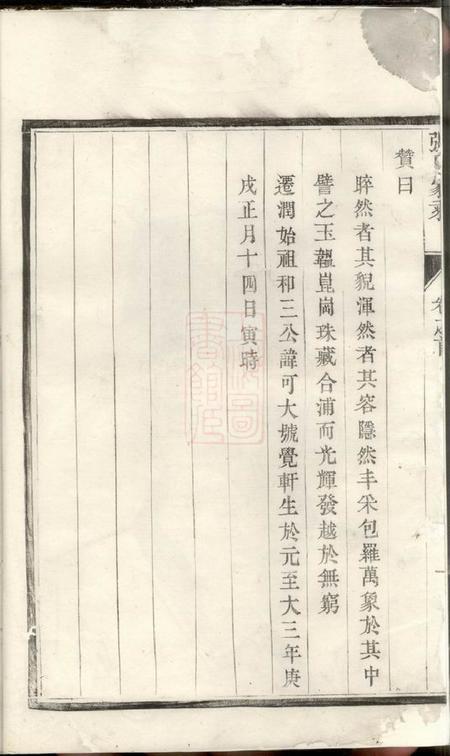 贊曰
睟然者其貎渾然者其容隱然丰采包羅萬象於其中
譬之玉韞崑岡珠藏合浦而光輝發越於無窮
遷潤始祖和三公諱可大號覺軒生於元至大三年庚
戌正月十四日寅時